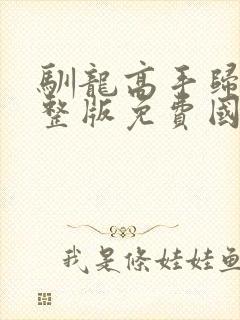 馴龍高手歸
整版免費國
我是條娃娃魚